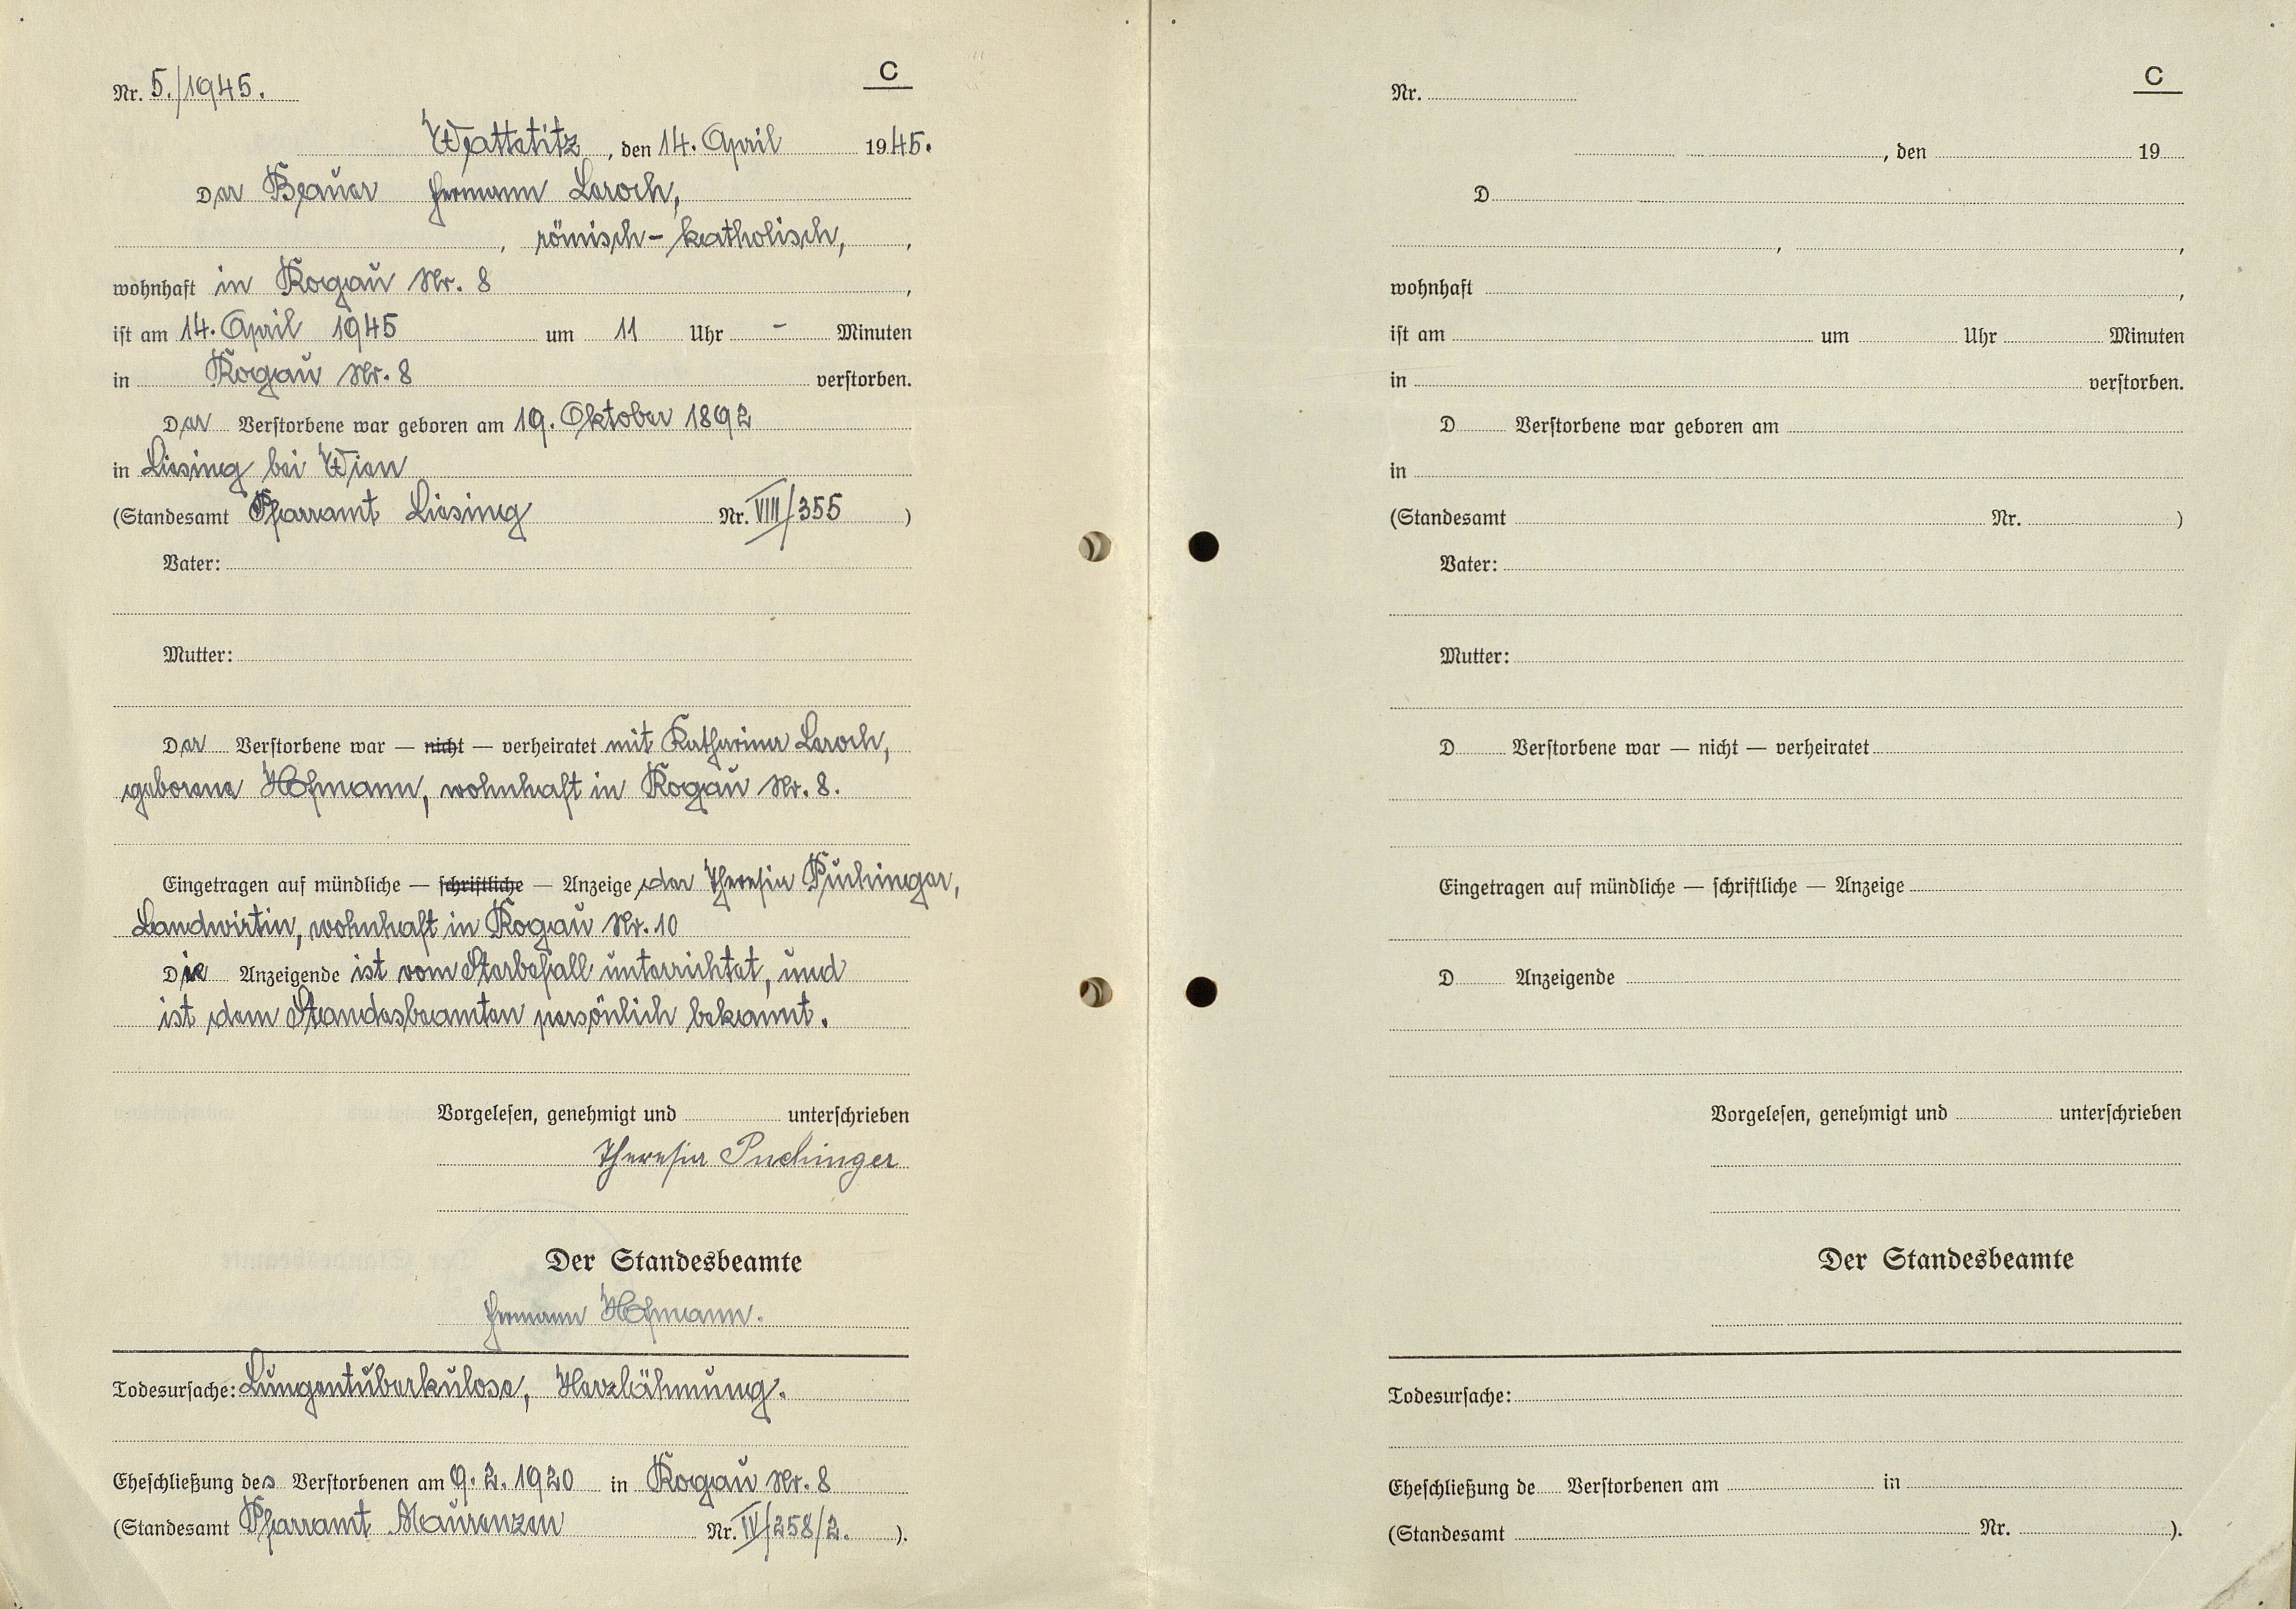 C
Nr. 5./1945.
Wattetitz, den 14. April 1945.
Der Bauer Hermann Leroch,
, römisch-katholisch, ,
wohnhaft in Kogau Nr. 8 ,
ist am 14. April 1945 um 11 Uhr - Minuten
in Kogau Nr. 8 verstorben.
Der Verstorbene war geboren am 19. Oktober 1892
in Liesing bei Wien
(Standesamt Pfarramt Liesing Nr. VIII/355 )
Vater:
Mutter:
Der Verstorbene war — nicht — verheiratet mit Katharina Leroch,
geborene Hofmann, wohnhaft in Kogau Nr. 8.
Eingetragen auf mündliche — schriftliche — Anzeige der Theresia Puchinger,
Landwirtin, wohnhaft in Kogau Nr. 10
Die Anzeigende ist vom Sterbefall unterrichtet, und
ist dem Standesbeamten persönlich bekannt.
Vorgelesen, genehmigt und unterschrieben
Theresia Puchinger
Der Standesbeamte
Hermann Hofmann.
Todesursache: Lungentuberkulose, Herzlähmung.
Eheschließung des Verstorbenen am 9. 2. 1920 in Kogau Nr. 8
(Standesamt Pfarramt Maurenzen Nr. IV/258/2. ).
C
Nr.
, den 19
D
, ,
wohnhaft ,
ist am um Uhr Minuten
in verstorben.
D Verstorbene war geboren am
in
(Standesamt Nr. )
Vater:
Mutter:
D Verstorbene war — nicht — verheiratet
Eingetragen auf mündliche — schriftliche — Anzeige
D Anzeigende
Vorgelesen, genehmigt und unterschrieben
Der Standesbeamte
Todesursache:
Eheschließung de Verstorbenen am in
(Standesamt Nr. ).